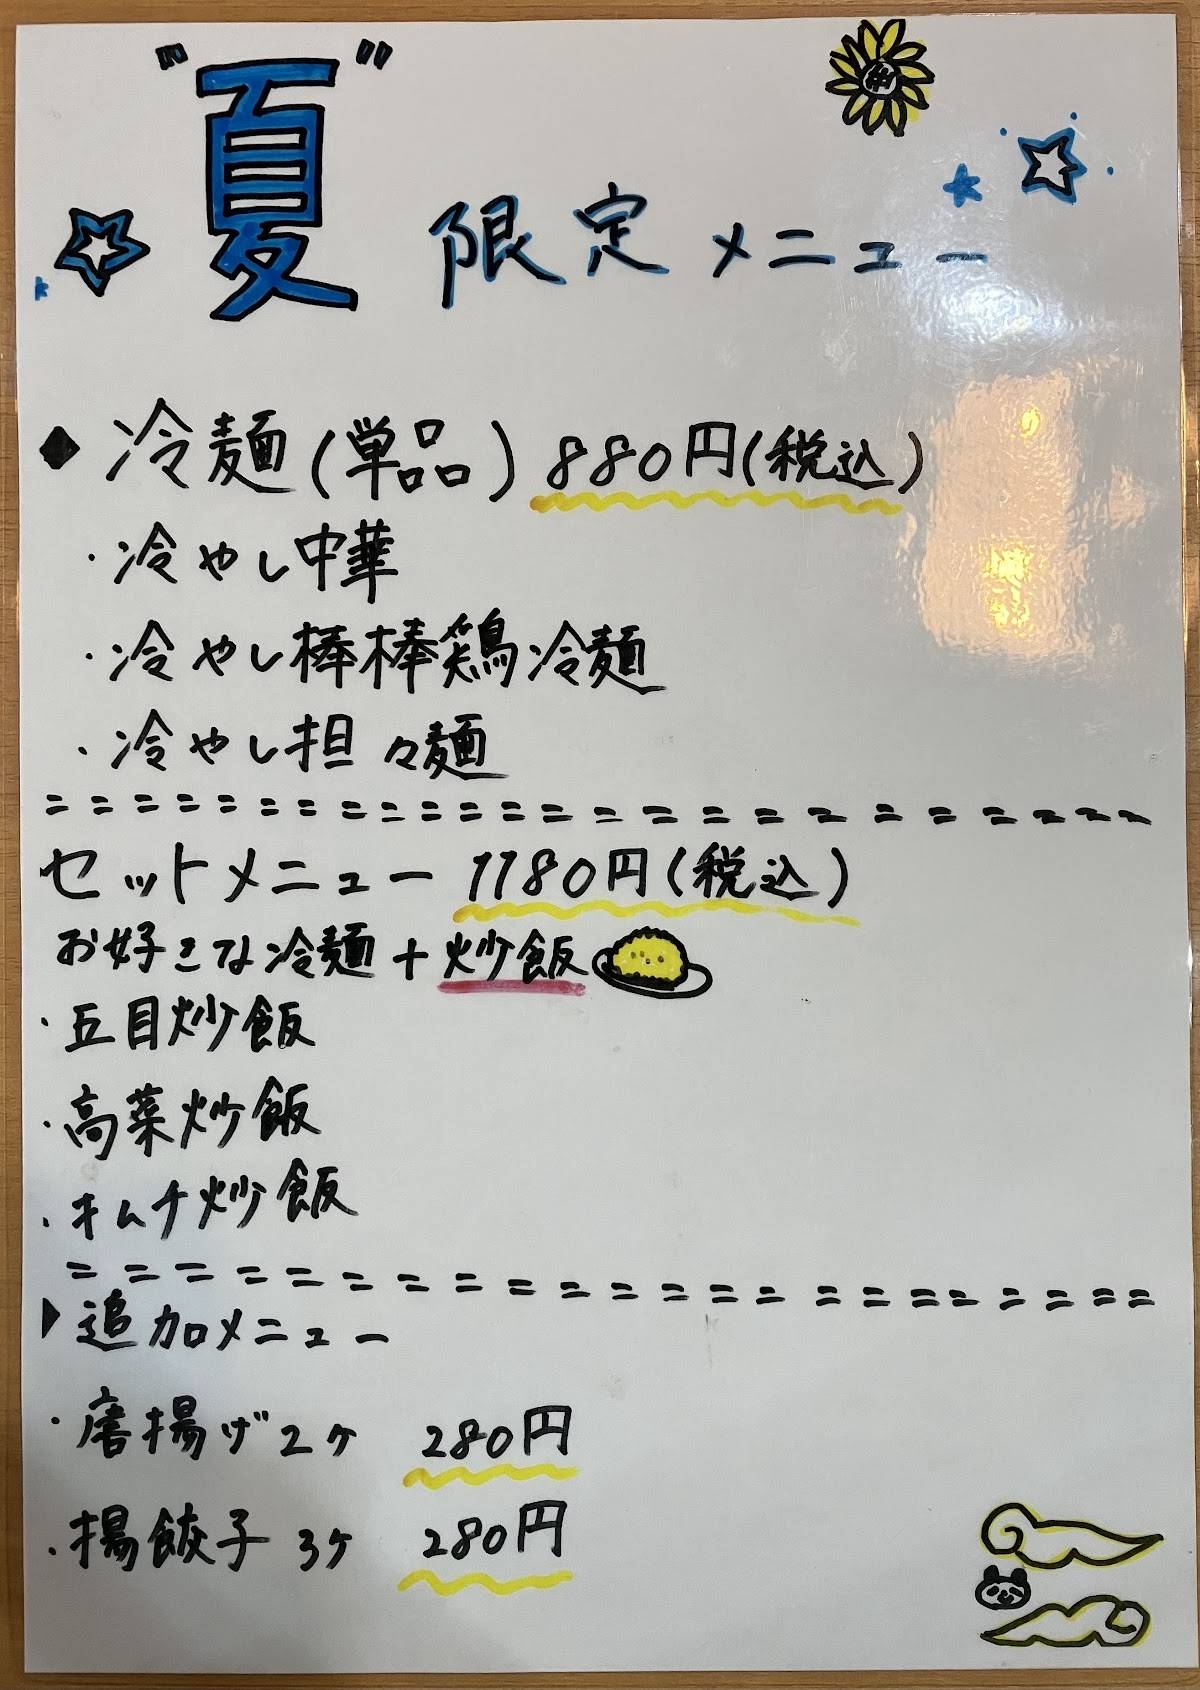 "夏" 限定メニュー
◆冷麺(単品) 880円(税込)
・冷やし中華
・冷やし棒棒鶏冷麺
・冷やし担々麺
セットメニュー 1180円(税込)
お好きな冷麺+炒飯
・五目炒飯
・高菜炒飯
・キムチ炒飯
▶追加メニュー
・唐揚げ2ヶ 280円
・揚餃子 3ヶ 280円